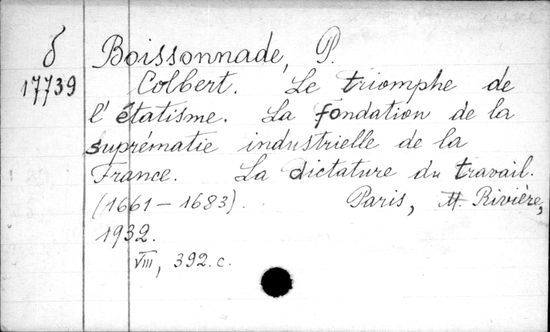 δ Boissonnade, P.
17739 Colbert. Le triomphe de
l'étatisme. La fondation de la
suprématie industrielle de la
France. La dictature du travail.
(1661-1683). Paris, M. Rivière,
1932.
VIII, 392.c.